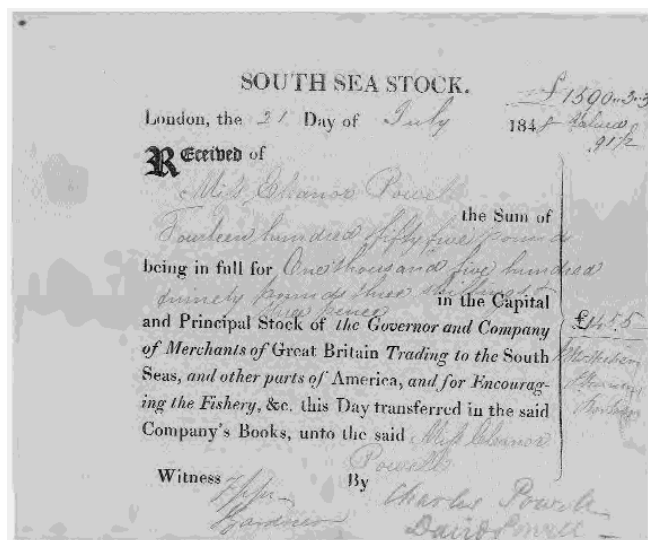 SOUTH SEA STOCK.
£1590"3"3
London, the 21 Day of July 1848
Value
91 1/2
Received of
Miss Eleanor Powell
the Sum of
Fourteen hundred fifty five pounds
being in full for One thousand five hundred
ninety pounds three shillings &
three pence in the Capital
and Principal Stock of the Governor and Company
£1455
of Merchants of Great Britain Trading to the South
Seas, and other parts of America, and for Encourag-
ing the Fishery, &c. this Day transferred in the said
Company's Books, unto the said Miss Eleanor
Powell
Witness By
Gardner
Charles Powell
David Powell